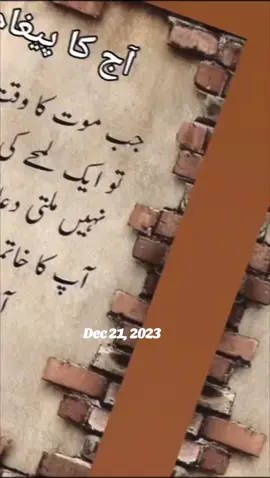 آج کا پیغام
جب موت کا وقت
تو ایک لمحے کی
نہیں ملتی دعا
آپ کا خاتمہ
Dec 21, 2023